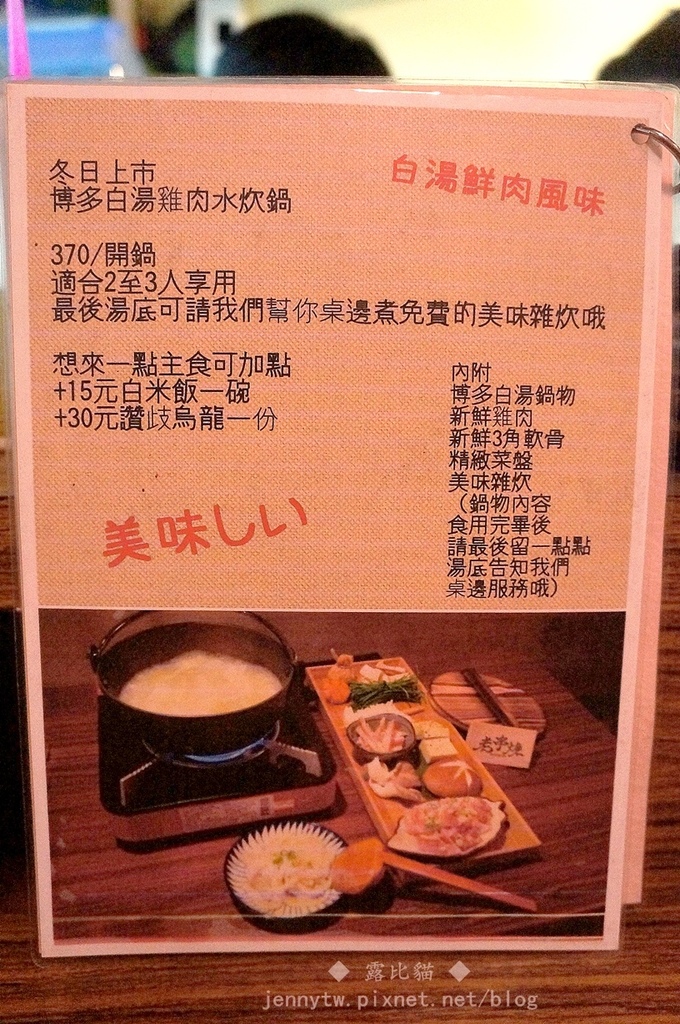 冬日上市
博多白湯雞肉水炊鍋
白湯鮮肉風味
370/開鍋
適合2至3人享用
最後湯底可請我們幫你桌邊煮免費的美味雜炊哦
想來一點主食可加點
+15元白米飯一碗
+30元讚歧烏龍一份
內附
博多白湯鍋物
新鮮雞肉
新鮮3角軟骨
精緻菜盤
美味雜炊
（鍋物內容
食用完畢後
請最後留一點點
湯底告知我們
桌邊服務哦）
美味しい
◆ 露比貓 ◆
jennytw.pixnet.net/blog